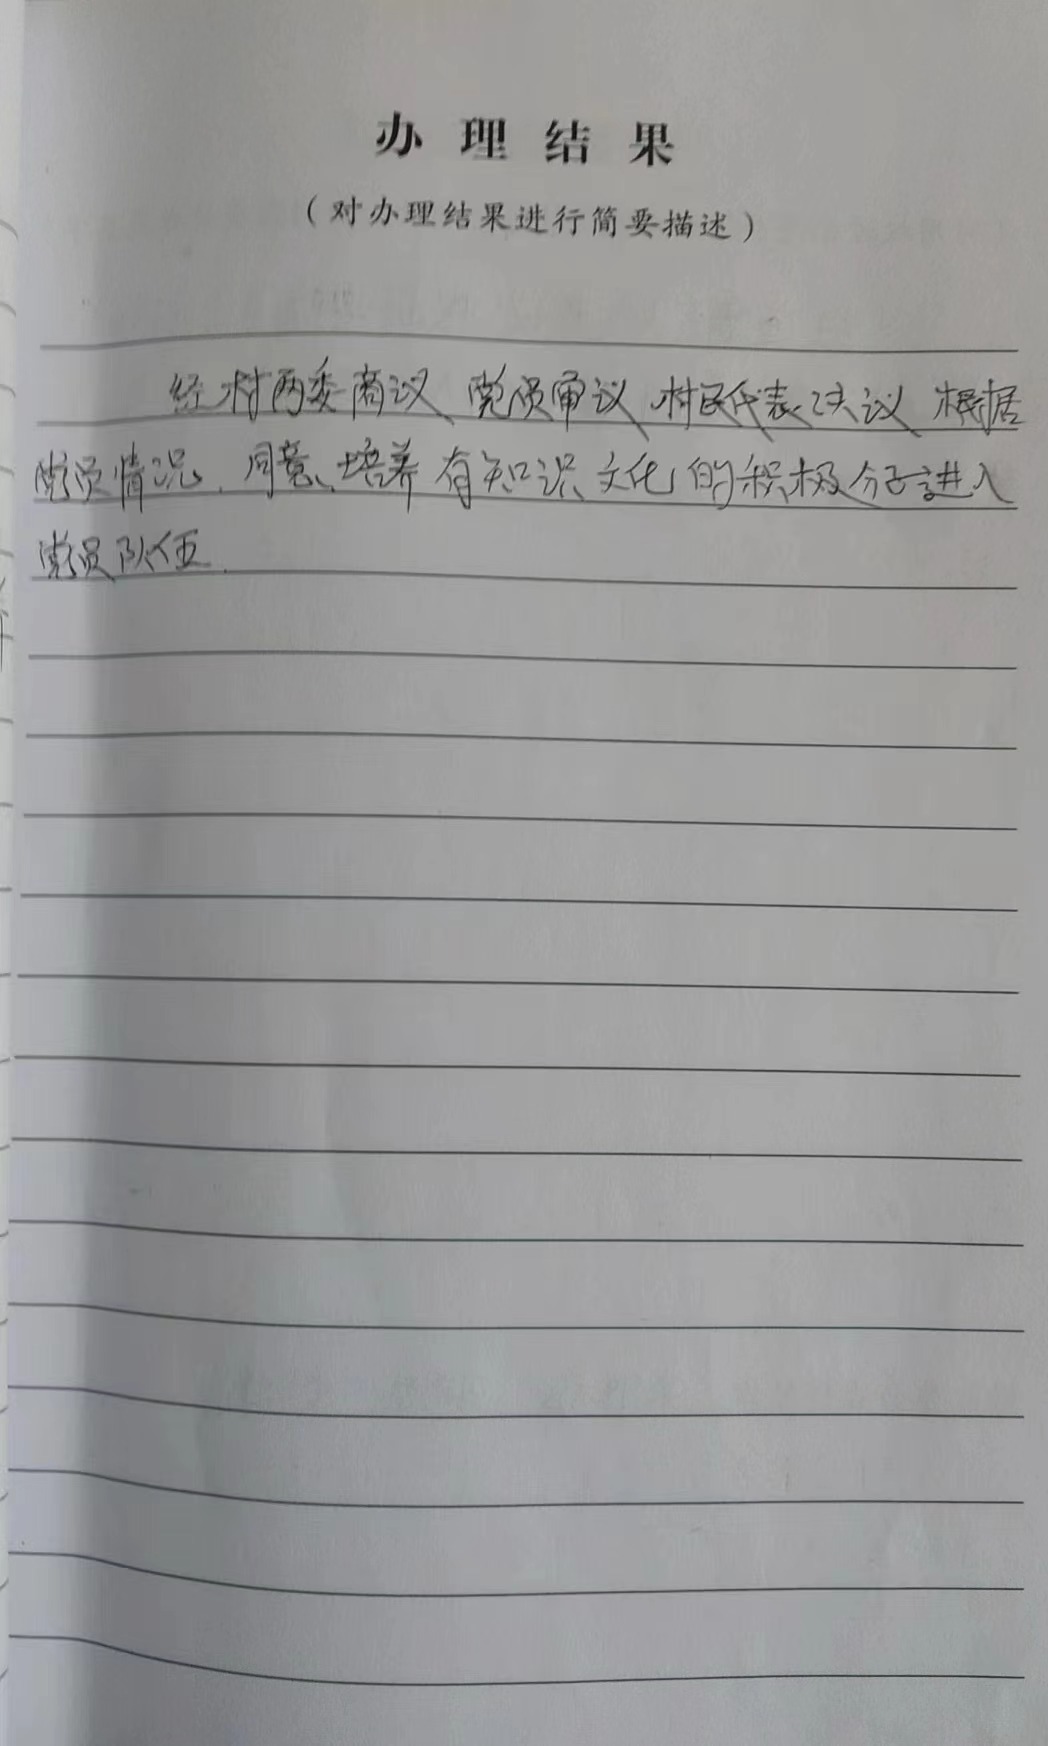 办理结果
（对办理结果进行简要描述）
经村两委商议 党员审议 村民代表决议 根据
党员情况，同意培养有知识文化的积极分子进入
党员队伍.